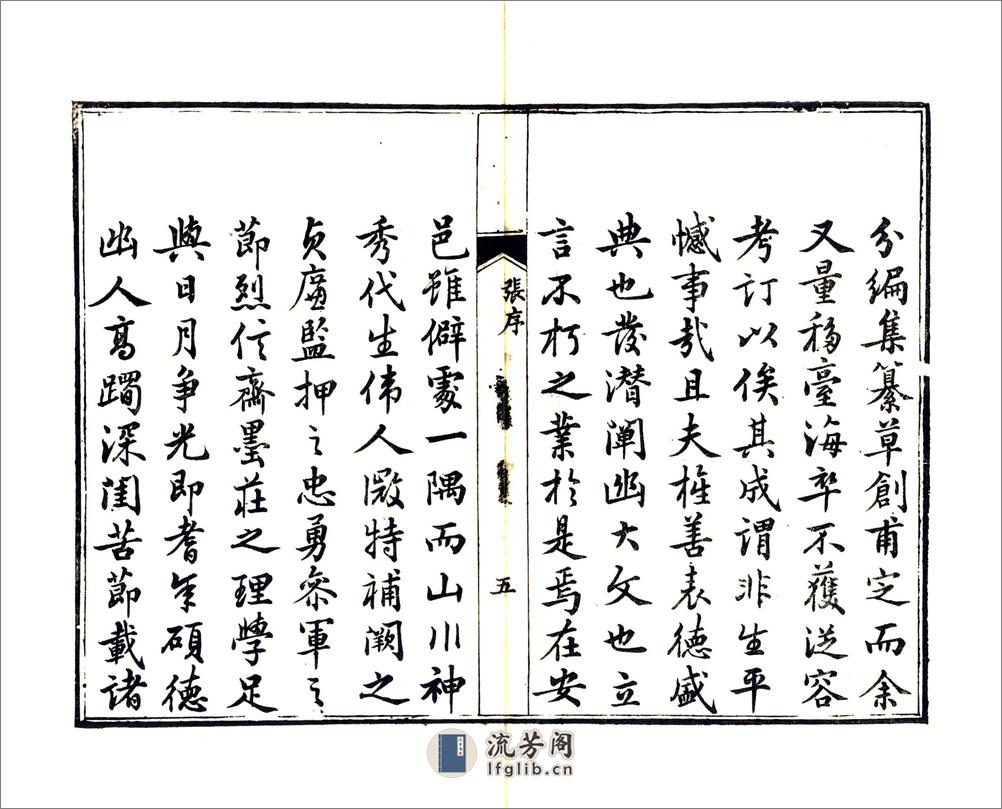 分編集纂草創甫定而余
又量移臺海卒不獲從容
考訂以俟其成謂非生平
憾事哉且夫旌善表德盛
典也發潛闡幽大文也立
言不朽之業於是焉在安
張序
五
邑雖僻處一隅而山川神
秀代生偉人殿特補闕之
貞廉監押之忠勇參軍之
節烈信齋墨莊之理學足
與日月爭光即耆年碩德
幽人高躅深閨苦節載諸
流芳阁
lfglib.cn